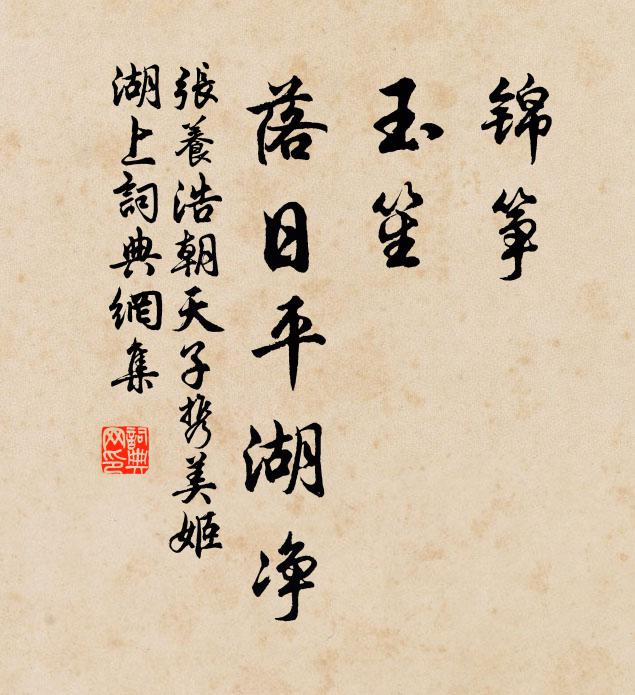 锦筝
玉笙
落日平湖净
張養浩朝天子携美姬
湖上詞典網集
詞典网印